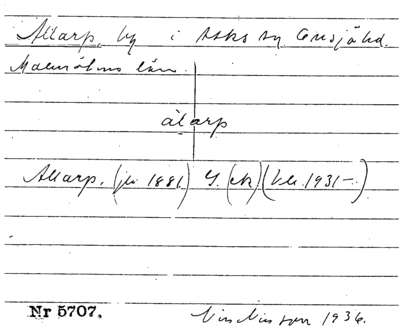 Allarp, by i Asks sn Onsjöhd.
Malmöhus län.
àlarp
Allarp. (jb. 1881.) Y. (ek) (kb. 1931-.)
Nr 5707.
1936.